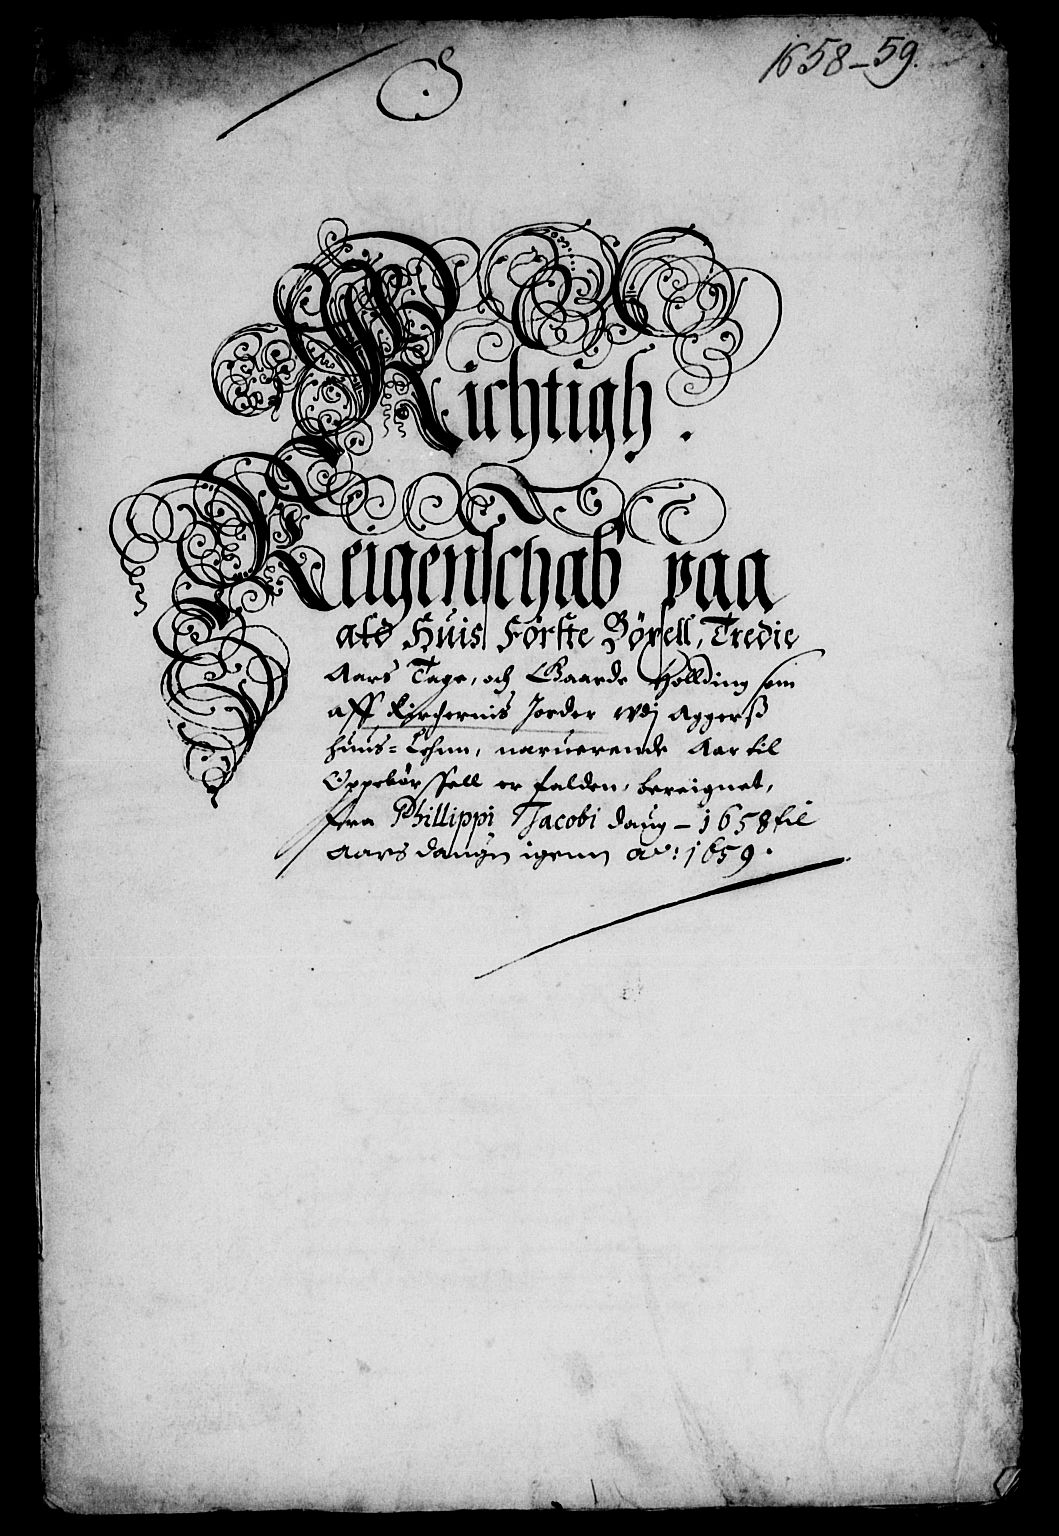 1658-59.
Richtigh.
Reigenschab paa
ald Huis Förste Böxell, Tredie
Aars Tage, och Gaarde Hollding som
aff Kirchernis Jorder wdj Aggerß
huus=Lehnn, neruerende Aar til
Oppebørssell er falden, bereignet,
fra Phillippi Jacobi daug - 1658 til
Aars daugn igenn ao: 1659.